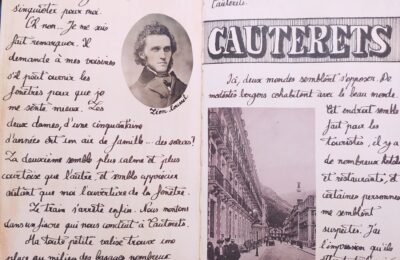 singuliter pour moi.
Oh non. Je me suis
fait remarquer. Il
demande à mes voisines
s'il peut ouvrir les
fenêtres pour que je
me sente mieux. Les
deux dames, d'une cinquantaine
d'années ont un air de famille... des sœurs?
La deuxième semble plus calme et plus
courtoise que l'autre, et semble apprécier
autant que moi l'ouverture de la fenêtre.
Le train s'arrête enfin. Nous montons
dans un fiacre qui nous conduit à Cauterets.
Ma toute petite valise trouve une
place au milieu des bagages nombreux
Cauterets
CAUTERETS
Ici, deux mondes semblent s'opposer. De
modestes bergers cohabitent avec le beau monde.
Cet endroit semble
fait pour les
touristes, il y a
de nombreux hôtels
et restaurants, et
certaines personnes
me semblent
suspectes. J'ai
l'impression qu'ils